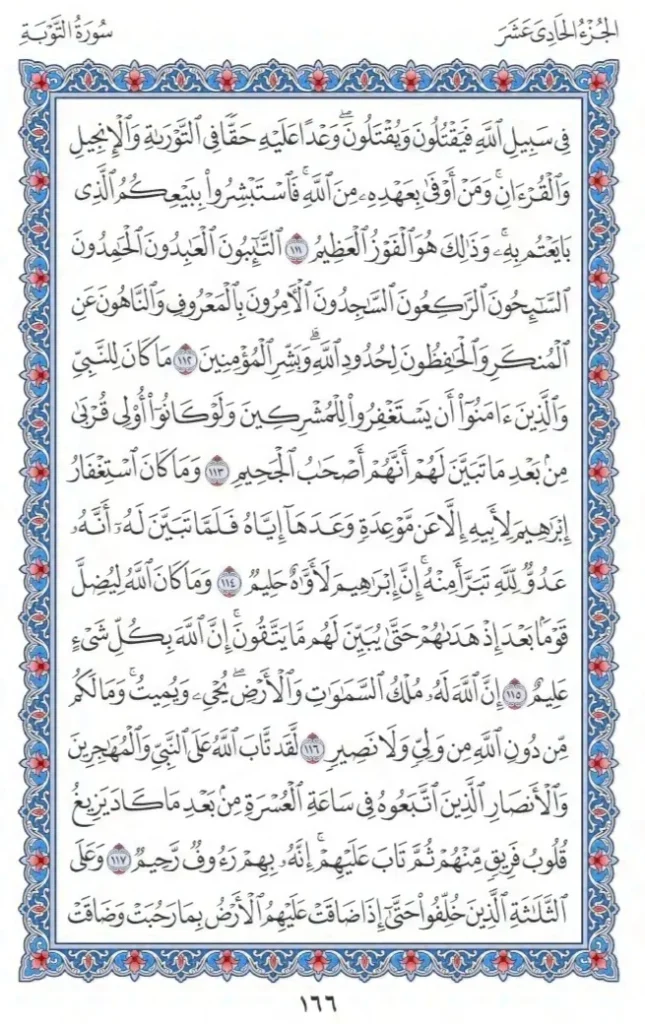 الجُزْءُ الحَادِى عَشَرَ
سُورَةُ التَّوْبَةِ
فِى سَبِيلِ ٱللَّهِ فَيَقْتُلُونَ وَيُقْتَلُونَۖ وَعْدًا عَلَيْهِ حَقًّا فِى ٱلتَّوْرَىٰةِ وَٱلْإِنجِيلِ
وَٱلْقُرْءَانِۚ وَمَنْ أَوْفَىٰ بِعَهْدِهِۦ مِنَ ٱللَّهِۚ فَٱسْتَبْشِرُوا۟ بِبَيْعِكُمُ ٱلَّذِى
بَايَعْتُم بِهِۦۚ وَذَٰلِكَ هُوَ ٱلْفَوْزُ ٱلْعَظِيمُ ١١١ ٱلتَّـٰٓئِبُونَ ٱلْعَـٰبِدُونَ ٱلْحَـٰمِدُونَ
ٱلسَّـٰٓئِحُونَ ٱلرَّٰكِعُونَ ٱلسَّـٰجِدُونَ ٱلْـَٔامِرُونَ بِٱلْمَعْرُوفِ وَٱلنَّاهُونَ عَنِ
ٱلْمُنكَرِ وَٱلْحَـٰفِظُونَ لِحُدُودِ ٱللَّهِۗ وَبَشِّرِ ٱلْمُؤْمِنِينَ ١١٢ مَا كَانَ لِلنَّبِىِّ
وَٱلَّذِينَ ءَامَنُوٓا۟ أَن يَسْتَغْفِرُوا۟ لِلْمُشْرِكِينَ وَلَوْ كَانُوٓا۟ أُو۟لِى قُرْبَىٰ
مِنۢ بَعْدِ مَا تَبَيَّنَ لَهُمْ أَنَّهُمْ أَصْحَـٰبُ ٱلْجَحِيمِ ١١٣ وَمَا كَانَ ٱسْتِغْفَارُ
إِبْرَٰهِيمَ لِأَبِيهِ إِلَّا عَن مَّوْعِدَةٍ وَعَدَهَآ إِيَّاهُ فَلَمَّا تَبَيَّنَ لَهُۥٓ أَنَّهُۥ
عَدُوٌّ لِّلَّهِ تَبَرَّأَ مِنْهُۚ إِنَّ إِبْرَٰهِيمَ لَأَوَّٰهٌ حَلِيمٌ ١١٤ وَمَا كَانَ ٱللَّهُ لِيُضِلَّ
قَوْمًۢا بَعْدَ إِذْ هَدَىٰهُمْ حَتَّىٰ يُبَيِّنَ لَهُم مَّا يَتَّقُونَۚ إِنَّ ٱللَّهَ بِكُلِّ شَىْءٍ
عَلِيمٌ ١١٥ إِنَّ ٱللَّهَ لَهُۥ مُلْكُ ٱلسَّمَـٰوَٰتِ وَٱلْأَرْضِۖ يُحْىِۦ وَيُمِيتُۚ وَمَا لَكُم
مِّن دُونِ ٱللَّهِ مِن وَلِىٍّ وَلَا نَصِيرٍ ١١٦ لَّقَد تَّابَ ٱللَّهُ عَلَى ٱلنَّبِىِّ وَٱلْمُهَـٰجِرِينَ
وَٱلْأَنصَارِ ٱلَّذِينَ ٱتَّبَعُوهُ فِى سَاعَةِ ٱلْعُسْرَةِ مِنۢ بَعْدِ مَا كَادَ يَزِيغُ
قُلُوبُ فَرِيقٍ مِّنْهُمْ ثُمَّ تَابَ عَلَيْهِمْۚ إِنَّهُۥ بِهِمْ رَءُوفٌ رَّحِيمٌ ١١٧ وَعَلَى
ٱلثَّلَـٰثَةِ ٱلَّذِينَ خُلِّفُوا۟ حَتَّىٰٓ إِذَا ضَاقَتْ عَلَيْهِمُ ٱلْأَرْضُ بِمَا رَحُبَتْ وَضَاقَتْ
١٦٦